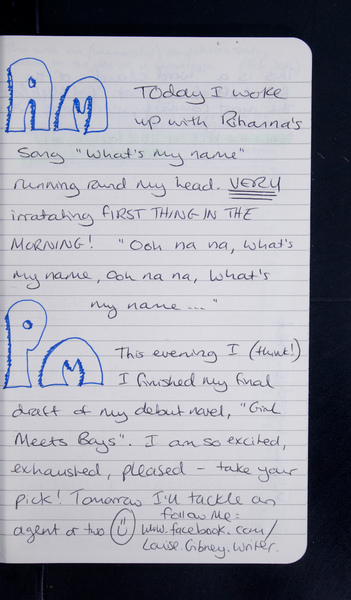 AM
Today I woke
up with Rihanna's
song "What's my name"
running rund my head. VERY
irratating FIRST THING IN THE
MORNING! "Ooh na na, what's
my name, Ooh na na, what's
my name ..."
PM
This evening I (think!)
I finished my final
draft of my debut novel, "Girl
Meets Boys". I am so excited,
exhausted, pleased - take your
pick! Tomorrow I'll tackle an
agent or two
follow me:
www.facebook.com/
Louise.Gibney.Writer.